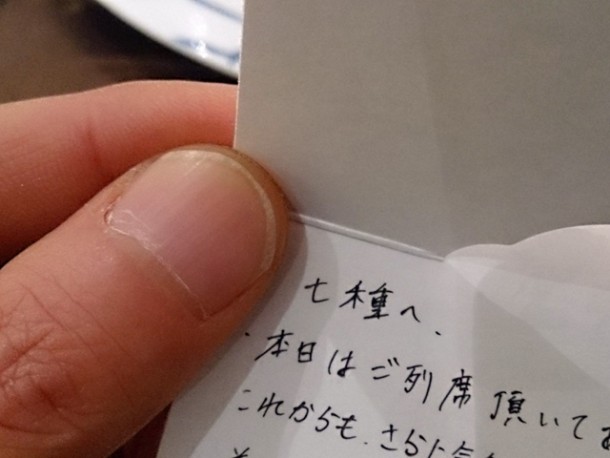 七種へ.
本日はご列席頂いて
これからも、さらに